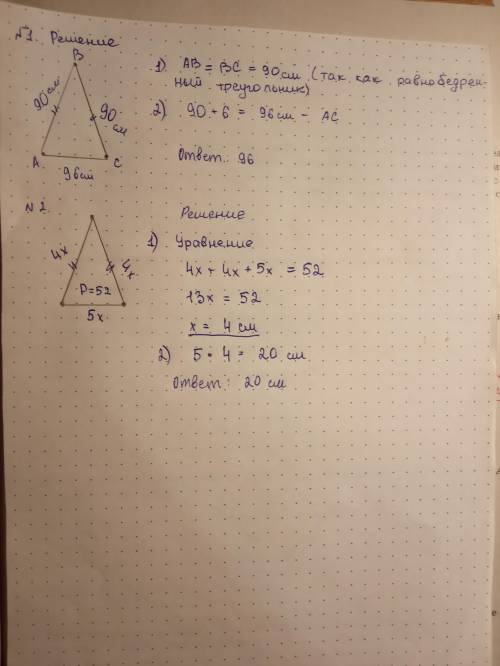 №1. Решение
B
90 см
90 см
A
C
96см
1) AB = BC = 90 см (так как равнобедрен-
ный треугольник)
2) 90 + 6 = 96 см - AC
Ответ: 96
№2.
4x
4x
P=52
5x
Решение
1) Уравнение
4x + 4x + 5x = 52
13x = 52
x = 4 см
2) 5 · 4 = 20 см
Ответ: 20 см